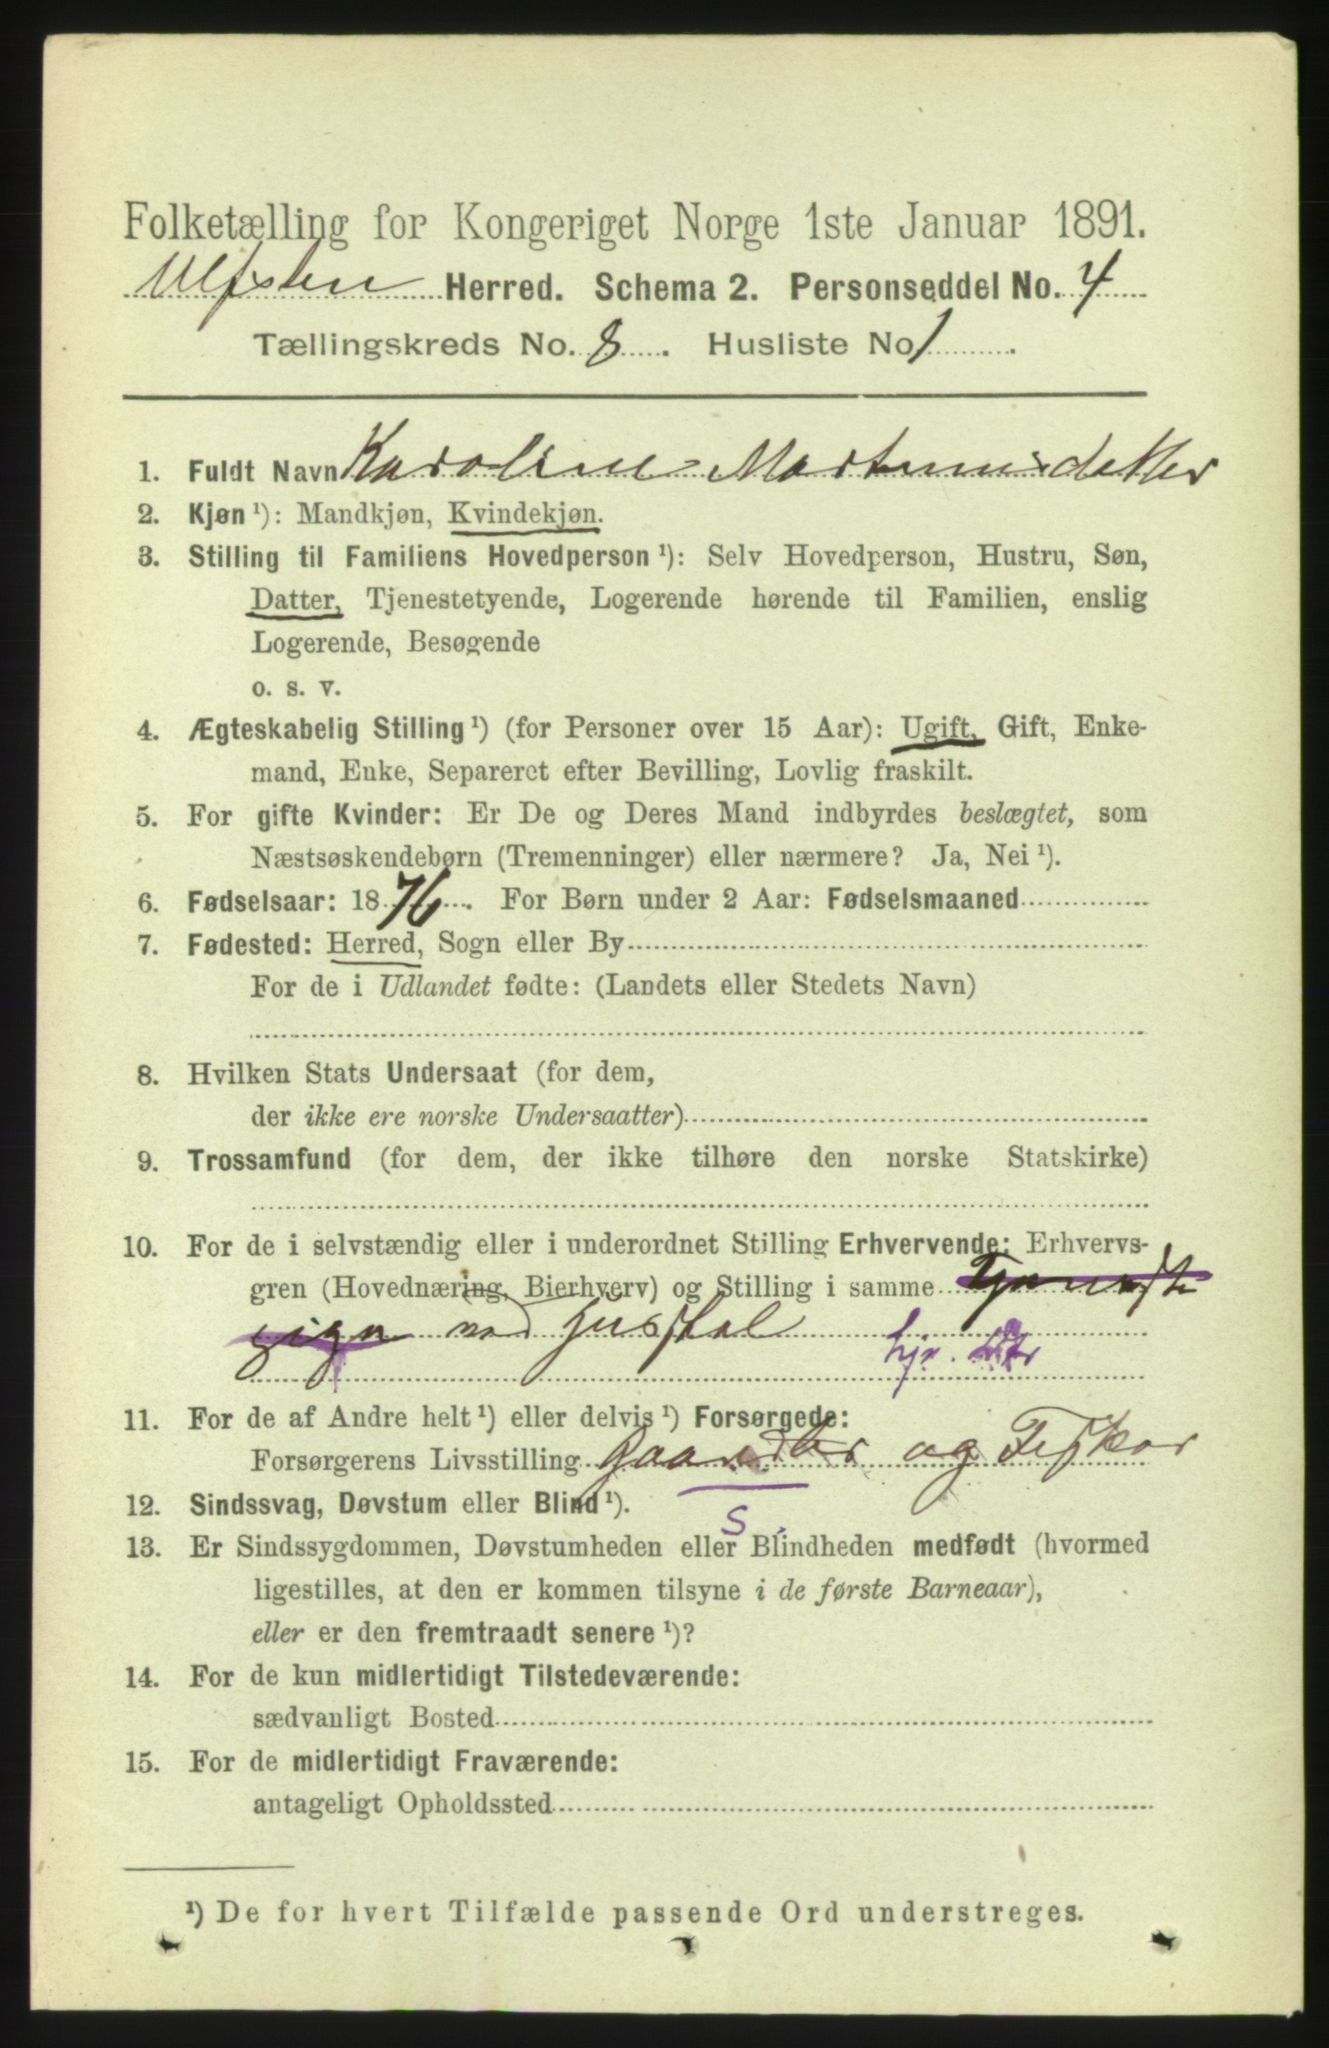 Folketælling for Kongeriget Norge 1ste Januar 1891.
Ulfsten Herred. Schema 2. Personseddel No. 4
Tællingskreds No. 8. Husliste No 1.
1. Fuldt Navn Karoline Martinusdatter
2. Kjøn ¹): Mandkjøn, Kvindekjøn.
3. Stilling til Familiens Hovedperson ¹): Selv Hovedperson, Hustru, Søn,
Datter, Tjenestetyende, Logerende hørende til Familien, enslig
Logerende, Besøgende
o. s. v.
4. Ægteskabelig Stilling ¹) (for Personer over 15 Aar): Ugift, Gift, Enke-
mand, Enke, Separeret efter Bevilling, Lovlig fraskilt.
5. For gifte Kvinder: Er De og Deres Mand indbyrdes beslægtet, som
Næstsøskendebørn (Tremenninger) eller nærmere? Ja, Nei ¹).
6. Fødselsaar: 1876. For Børn under 2 Aar: Fødselsmaaned
7. Fødested: Herred, Sogn eller By
For de i Udlandet fødte: (Landets eller Stedets Navn)
8. Hvilken Stats Undersaat (for dem,
der ikke ere norske Undersaatter)
9. Trossamfund (for dem, der ikke tilhøre den norske Statskirke)
10. For de i selvstændig eller i underordnet Stilling Erhvervende: Erhvervs-
gren (Hovednæring, Bierhverv) og Stilling i samme
11. For de af Andre helt ¹) eller delvis ¹) Forsørgede:
Forsørgerens Livsstilling og Fisker
S.
12. Sindssvag, Døvstum eller Blind ¹).
13. Er Sindssygdommen, Døvstumheden eller Blindheden medfødt (hvormed
ligestilles, at den er kommen tilsyne i de første Barneaar),
eller er den fremtraadt senere ¹)?
14. For de kun midlertidigt Tilstedeværende:
sædvanligt Bosted
15. For de midlertidigt Fraværende:
antageligt Opholdssted
¹) De for hvert Tilfælde passende Ord understreges.